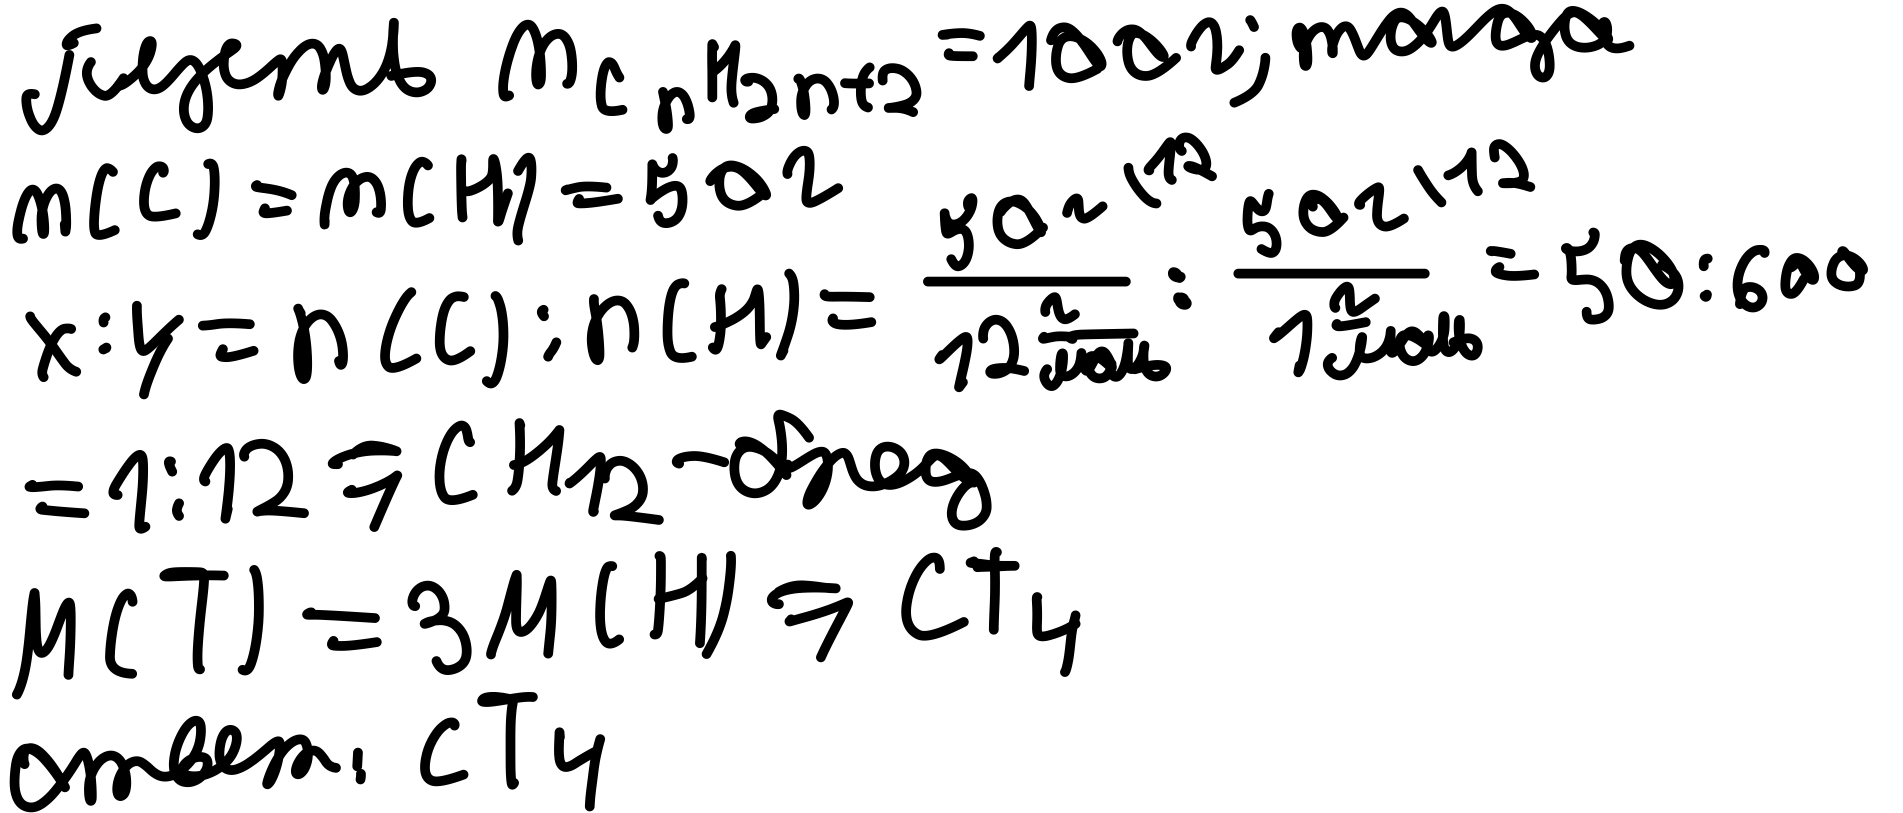 пусть m CnH2n+2 = 100г; тогда
m(C) = m(H) = 50г
x:y = n(C):n(H) = 50г \12 / 12 г/моль : 50г \12 / 1 г/моль = 50:600
= 1:12 => CH12 - бред
M(T) = 3M(H) => CT4
ответ: CT4